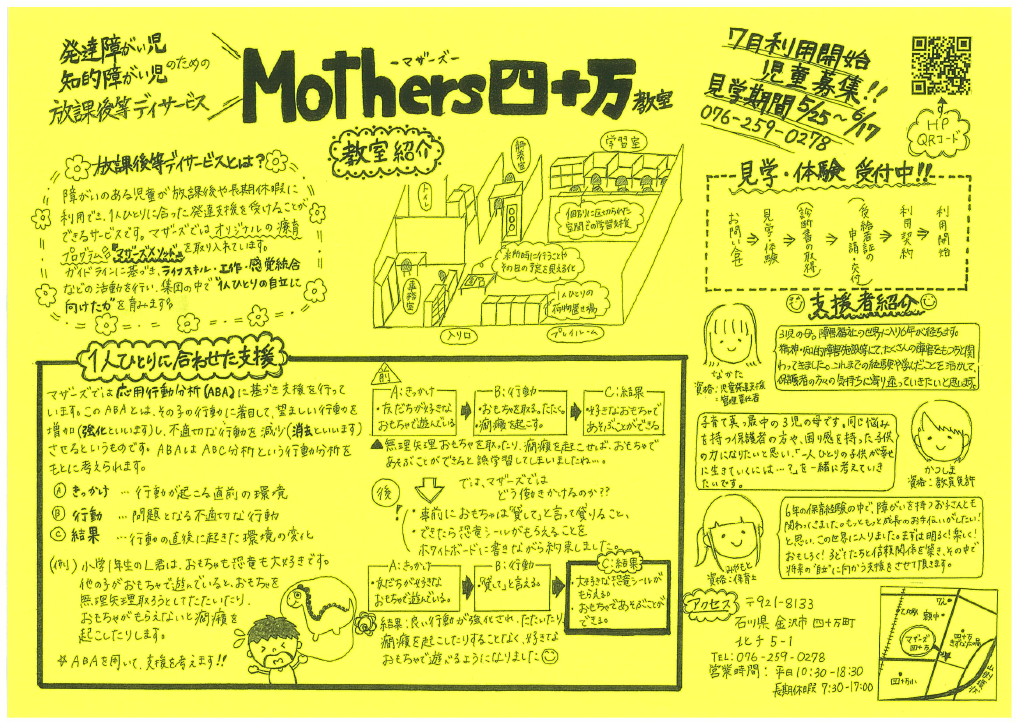 発達障がい児
知的障がい児のための
放課後等デイサービス
-マザーズ-
Mothers四十万教室
7月利用開始
児童募集!!
見学期間5/25～6/17
076-259-0278
HP
QRコード
放課後等デイサービスとは?
障がいのある児童が放課後や長期休暇に
利用でき、1人ひとりに合った発達支援を受けることが
できるサービスです。マザーズでは、オリジナルの療育
プログラム『マザーズメソッド』を取り入れています。
ガイドラインに基づき、ライフスキル・工作・感覚統合
などの活動を行い、集団の中で"1人ひとりの自立に
向けた力"を育みます
教室紹介
トイレ
静養室
学習室
個別に区切られた
空間での学習支援
来所時に行うことや
その日の予定を見える化
事務室
1人ひとりの
荷物置き場
入り口
プレイルーム
見学・体験 受付中!!
お問い合せ
見学・体験
(診断書の取得)
(受給者証の
申請・交付)
利用契約
利用開始
支援者紹介
3児の母。障害福祉の世界に入り6年が経ちます。
精神・知的障害施設等にて、たくさんの障害をもつ方と関
わってきました。これまでの経験や学んだことを活かして、
保護者の方々の気持ちに寄り添っていきたいと思います。
なかた
資格:児童発達支援
管理責任者
子育て真っ最中の3児の母です。同じ悩み
を持つ保護者の方や、困り感を持った子供
の力になりたいと思い、「一人ひとりの子供が幸せ
に生きていくには…?」を一緒に考えていき
たいです。
かつしま
資格:教員免許
6年の保育経験の中で、障がいを持つお子さんとも
関わってきました。もっともっと成長のお手伝いがしたい!
と思い、この世界に入りました。まずは明るく!楽しく!
おもしろく!子どもたちと信頼関係を築き、その中で
将来の"自立"に向かう支援をさせて頂きます。
みやもと
資格:保育士
1人ひとりに合わせた支援
マザーズでは応用行動分析(ABA)に基づき支援を行って
います。このABAとは、その子の行動に着目して、望ましい行動を
増加(強化といいます)し、不適切な行動を減少(消去といいます)
させるというものです。ABAはABC分析という行動分析を
もとに考えられます。
Ⓐ きっかけ …行動が起こる直前の環境
Ⓑ 行動 …問題となる不適切な行動
Ⓒ 結果 …行動の直後に起きた環境の変化
(例)小学1年生のL君は、おもちゃも恐竜も大好きです。
他の子がおもちゃで遊んでいると、おもちゃを
無理矢理取ろうとしてたたいたり、
おもちゃがもらえないと癇癪を
起こしたりします。
☆ABAを用いて、支援を考えます!!
前
A:きっかけ
・友だちが好きな
おもちゃで遊んでいる
B:行動
・おもちゃを取る、たたく。
・癇癪を起こす。
C:結果
・好きなおもちゃで
あそぶことができる
▲無理矢理おもちゃを取ったり、癇癪を起こせば、おもちゃで
あそぶことができると誤学習してしまいましたね…。
後
では、マザーズでは
どう働きかけるのか??
・事前におもちゃは「貸して」と言って借りること、
・できたら恐竜シールがもらえることを
ホワイトボードに書きながら約束しました。
A:きっかけ
・友だちが好きな
おもちゃで遊んでいる。
B:行動
・「貸して」と言える
C:結果
・大好きな恐竜シールが
もらえる。
・おもちゃであそぶことが
できる。
結果:良い行動が強化され、たたいたり、
癇癪を起こしたりすることなく、好きな
おもちゃで遊べるようになりました
アクセス
〒921-8133
石川県 金沢市 四十万町
北チ5-1
TEL:076-259-0278
営業時間:平日10:30-18:30
長期休暇 7:30-17:00
マザーズ
四十万
四十万小